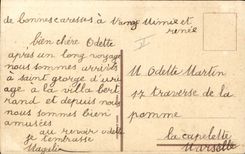 de bonnes caresses à Vonge Mimie et
renée
bien chère Odette
après un long voyage
nous sommes arrivés
à saint george d'uri
age à la villa Bert
rand et depuis nous
nous sommes bien
amusées
au revoir odette
je t'embrasse
Magelie
M. Odette Martin
17 traverse de la
pomme
la capelette
Marseille